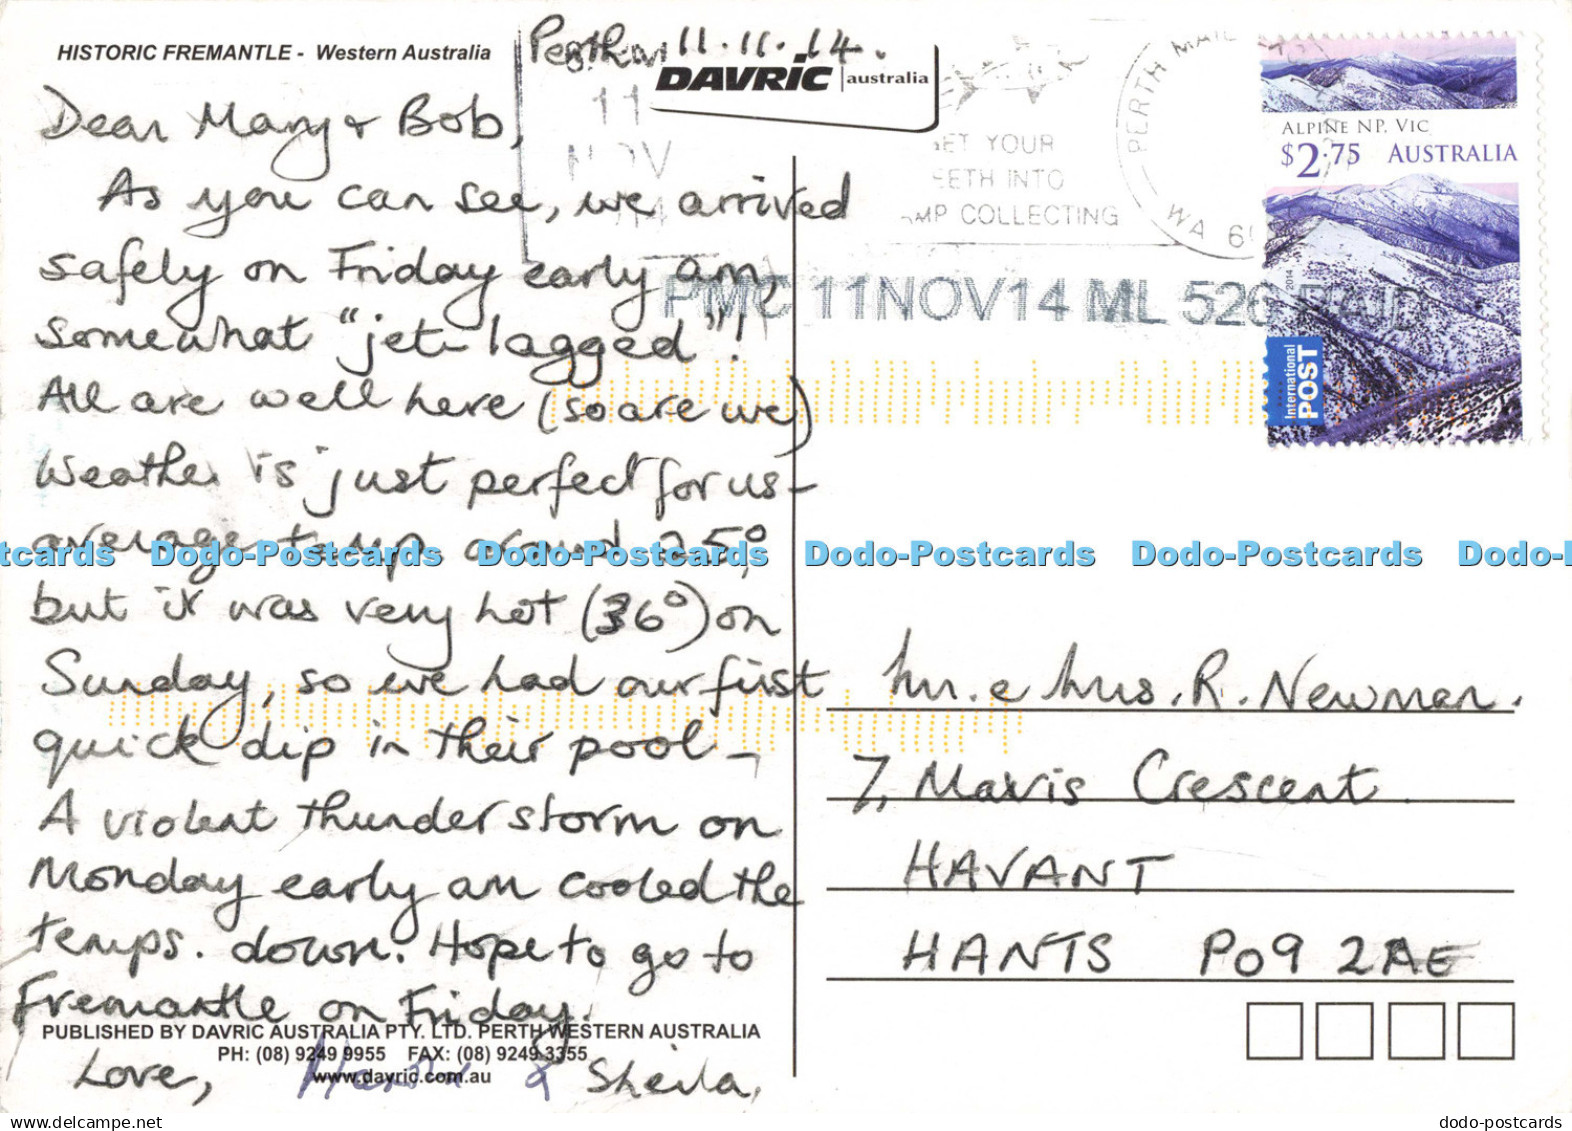 HISTORIC FREMANTLE - Western Australia
Perth 11.11.14.
DAVRIC australia
Dear Mary & Bob,
As you can see, we arrived
safely on Friday early am,
somewhat "jet-lagged"!
All are well here (so are we)
Weather is just perfect for us -
average temp around 25°,
but it was very hot (36°) on
Sunday, so we had our first
quick dip in their pool -
A violent thunderstorm on
Monday early am cooled the
temps. down. Hope to go to
Fremantle on Friday.
Love, & Sheila,
PUBLISHED BY DAVRIC AUSTRALIA PTY. LTD. PERTH WESTERN AUSTRALIA
PH: (08) 9249 9955 FAX: (08) 9249 3355
www.davric.com.au
11
NOV
YOUR
INTO
COLLECTING
PERTH MAIL
WA
PMC 11NOV14 ML 526 PAID
ALPINE NP. VIC
$2.75 AUSTRALIA
2014
International
POST
Mr. & Mrs. R. Newman.
7, Mavis Crescent
HAVANT
HANTS PO9 2AE
Dodo-Postcards Dodo-Postcards Dodo-Postcards Dodo-Postcards
dodo-postcards.com